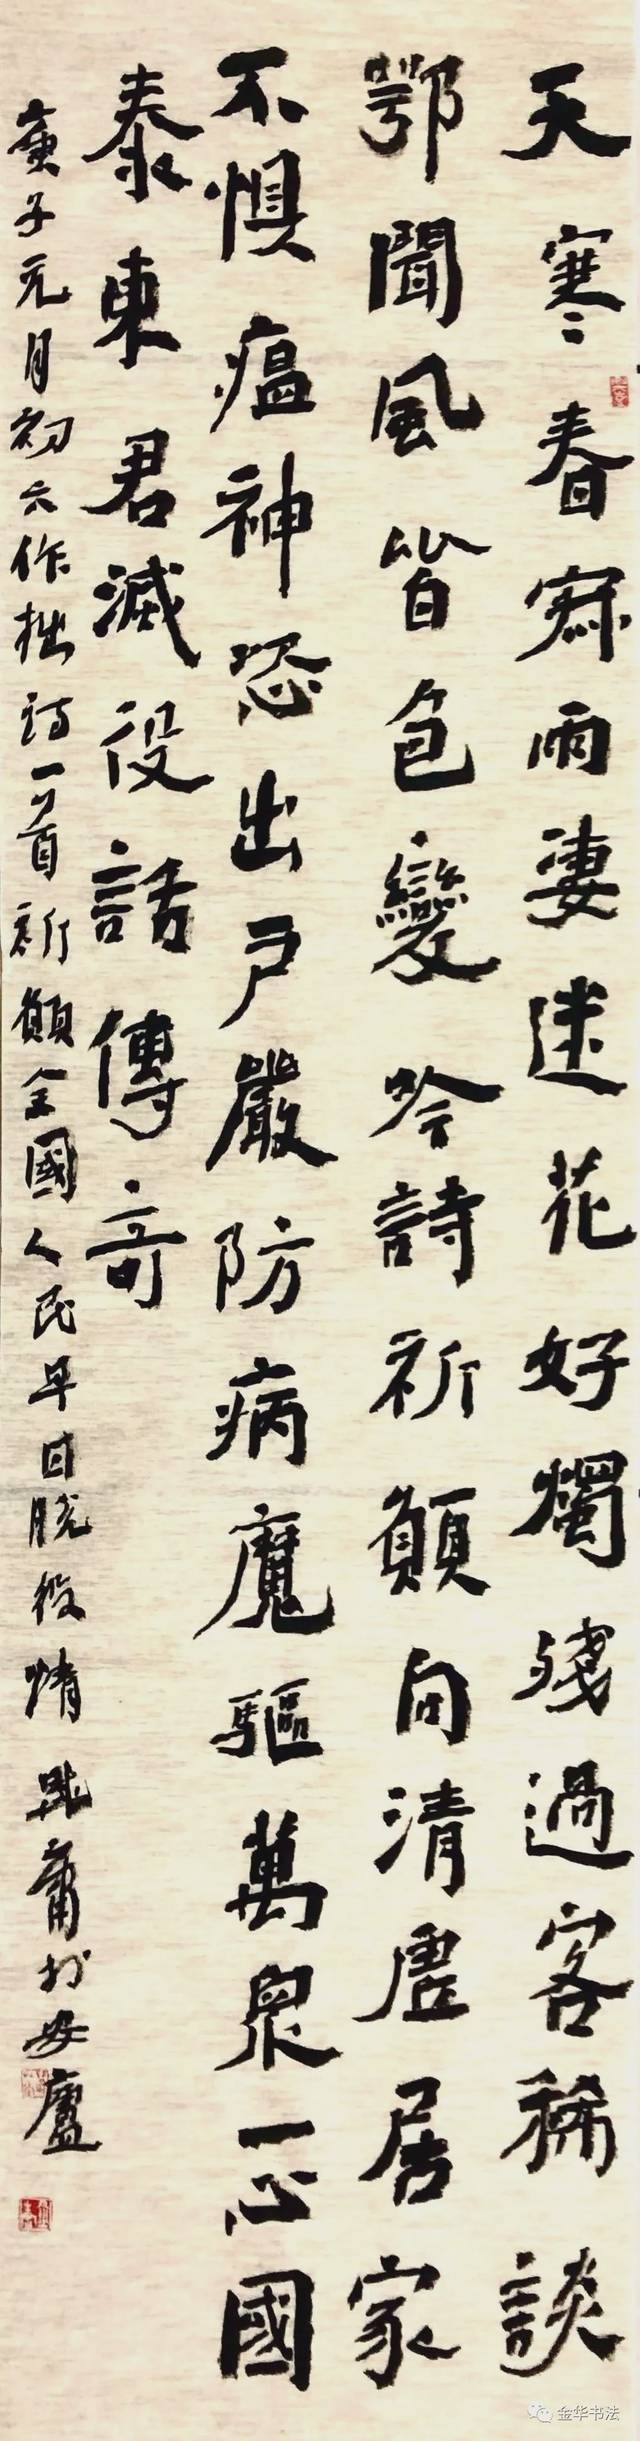 天寒春寂雨凄迷花好燭殘過客稀談
鄂聞風皆色變吟詩祈願向清虛居家
不懼瘟神恐出戶嚴防病魔驅萬眾一心國
泰東君滅役話傳奇
庚子元月初六作拙詩一首祈願全國人民早日脫役情
金华书法